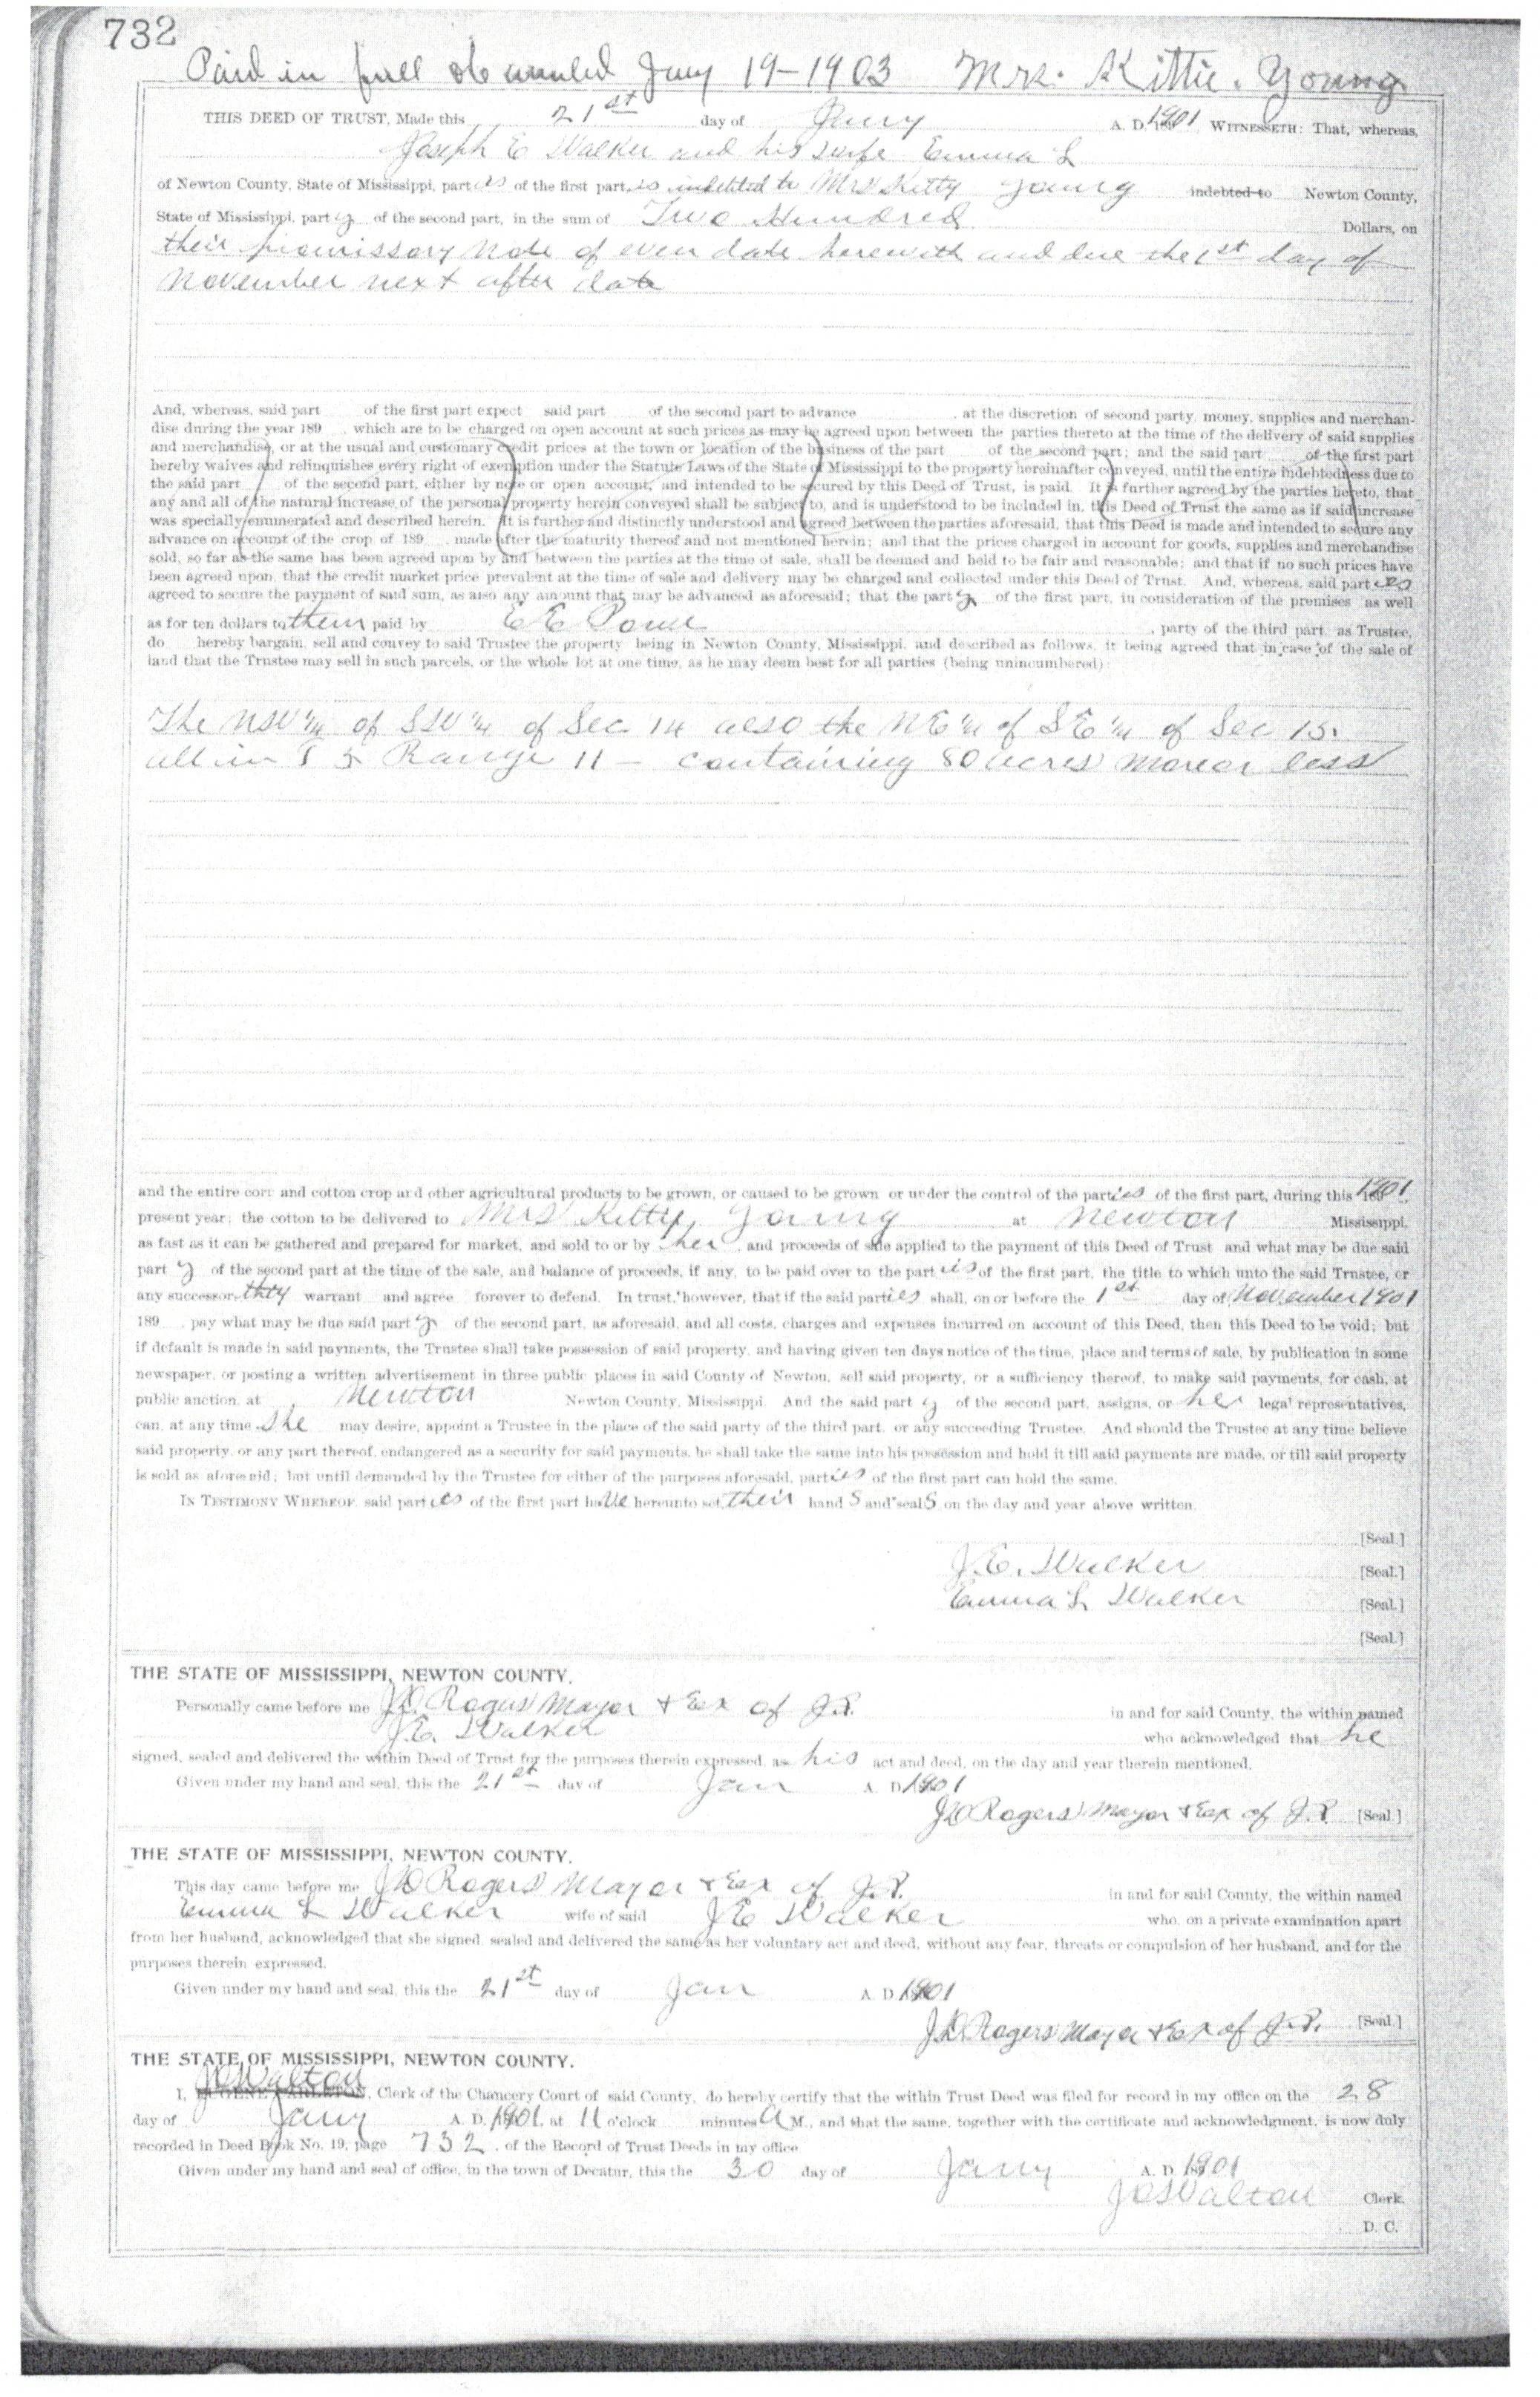 732
Paid in full & canceled Jany 19-1903 Mrs. Kittie. Young
THIS DEED OF TRUST, Made this 21st day of Jany A. D. 1901 WITNESSETH: That, whereas,
Joseph E Walker and his wife Emma L
of Newton County, State of Mississippi, parties of the first part, is indebted to Mrs Kitty Young indebted to Newton County,
State of Mississippi, party of the second part, in the sum of Two Hundred Dollars, on
their promissory note of even date herewith and due the 1st day of
November next after date
And, whereas, said part of the first part expect said part of the second part to advance , at the discretion of second party, money, supplies and merchan-
dise during the year 189 , which are to be charged on open account at such prices as may be agreed upon between the parties thereto at the time of the delivery of said supplies
and merchandise, or at the usual and customary credit prices at the town or location of the business of the part of the second part; and the said part of the first part
hereby waives and relinquishes every right of exemption under the Statute Laws of the State of Mississippi to the property hereinafter conveyed, until the entire indebtedness due to
the said part of the second part, either by note or open account, and intended to be secured by this Deed of Trust, is paid. It is further agreed by the parties hereto, that
any and all of the natural increase of the personal property herein conveyed shall be subject to, and is understood to be included in, this Deed of Trust the same as if said increase
was specially enumerated and described herein. It is further and distinctly understood and agreed between the parties aforesaid, that this Deed is made and intended to secure any
advance on account of the crop of 189 , made after the maturity thereof and not mentioned herein; and that the prices charged in account for goods, supplies and merchandise
sold, so far as the same has been agreed upon by and between the parties at the time of sale, shall be deemed and held to be fair and reasonable; and that if no such prices have
been agreed upon, that the credit market price prevalent at the time of sale and delivery may be charged and collected under this Deed of Trust. And, whereas, said parties
agreed to secure the payment of said sum, as also any amount that may be advanced as aforesaid; that the party of the first part, in consideration of the premises as well
as for ten dollars to them paid by E E Powe , party of the third part, as Trustee,
do hereby bargain, sell and convey to said Trustee the property being in Newton County, Mississippi, and described as follows, it being agreed that in case of the sale of
land that the Trustee may sell in such parcels, or the whole lot at one time, as he may deem best for all parties (being unincumbered):
The NW ¼ of SW ¼ of Sec 14 also the NE ¼ of SE ¼ of Sec 15.
all in T 5 Range 11 - containing 80 acres more or less
and the entire corn and cotton crop and other agricultural products to be grown, or caused to be grown or under the control of the parties of the first part, during this 1901
present year; the cotton to be delivered to Mrs Kitty Young at Newton Mississippi,
as fast as it can be gathered and prepared for market, and sold to or by her and proceeds of sale applied to the payment of this Deed of Trust and what may be due said
party of the second part at the time of the sale, and balance of proceeds, if any, to be paid over to the parties of the first part, the title to which unto the said Trustee, or
any successor, they warrant and agree forever to defend. In trust, however, that if the said parties shall, on or before the 1st day of November 1901
189 , pay what may be due said party of the second part, as aforesaid, and all costs, charges and expenses incurred on account of this Deed, then this Deed to be void; but
if default is made in said payments, the Trustee shall take possession of said property, and having given ten days notice of the time, place and terms of sale, by publication in some
newspaper, or posting a written advertisement in three public places in said County of Newton, sell said property, or a sufficiency thereof, to make said payments, for cash, at
public auction, at Newton Newton County, Mississippi. And the said party of the second part, assigns, or her legal representatives,
can, at any time she may desire, appoint a Trustee in the place of the said party of the third part, or any succeeding Trustee. And should the Trustee at any time believe
said property, or any part thereof, endangered as a security for said payments, he shall take the same into his possession and hold it till said payments are made, or till said property
is sold as aforesaid; but until demanded by the Trustee for either of the purposes aforesaid, parties of the first part can hold the same.
IN TESTIMONY WHEREOF, said parties of the first part have hereunto set their hands and seals on the day and year above written.
[Seal.]
J. E. Walker [Seal.]
Emma L Walker [Seal.]
[Seal.]
THE STATE OF MISSISSIPPI, NEWTON COUNTY.
Personally came before me J D Rogers Mayor & Ex of J.P. in and for said County, the within named
J. E. Walker who acknowledged that he
signed, sealed and delivered the within Deed of Trust for the purposes therein expressed, as his act and deed, on the day and year therein mentioned.
Given under my hand and seal, this the 21st day of Jan A. D. 1901
J D Rogers Mayor & Ex of J.P. [Seal.]
THE STATE OF MISSISSIPPI, NEWTON COUNTY.
This day came before me J D Rogers Mayor & Ex of J.P. in and for said County, the within named
Emma L Walker wife of said J E Walker who, on a private examination apart
from her husband, acknowledged that she signed, sealed and delivered the same as her voluntary act and deed, without any fear, threats or compulsion of her husband, and for the
purposes therein expressed.
Given under my hand and seal, this the 21st day of Jan A. D. 1901
J D Rogers Mayor & Ex of J.P. [Seal.]
THE STATE OF MISSISSIPPI, NEWTON COUNTY.
I, J O Walton, Clerk of the Chancery Court of said County, do hereby certify that the within Trust Deed was filed for record in my office on the 28
day of Jany A. D. 1901, at 11 o'clock minutes A M., and that the same, together with the certificate and acknowledgment, is now duly
recorded in Deed Book No. 19, page 732, of the Record of Trust Deeds in my office
Given under my hand and seal of office, in the town of Decatur, this the 30 day of Jany A. D. 1901
J O Walton Clerk.
D. C.